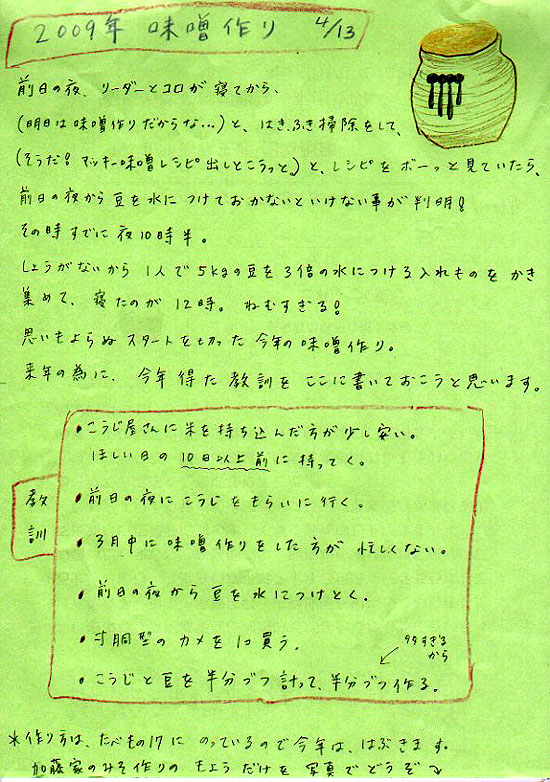 2009年 味噌作り 4/13
前日の夜、リーダーとコロが寝てから、
(明日は味噌作りだからな…)と、はきふき掃除をして、
(そうだ!マッキー味噌レシピ出しとこうっと。)と、レシピをボーっと見ていたら、
前日の夜から豆を水につけておかないといけない事が判明!
その時すでに夜10時半。
しょうがないから1人で5kgの豆を3倍の水につける入れものをかき
集めて、寝たのが12時。ねむすぎる!
思いもよらぬスタートを切った今年の味噌作り。
来年の為に、今年得た教訓をここに書いておこうと思います。
教訓
・こうじ屋さんに米を持ち込んだ方が少し安い。
ほしい日の10日以上前に持ってく。
・前日の夜にこうじをもらいに行く。
・3月中に味噌作りをした方が忙しくない。
・前日の夜から豆を水につけとく。
・寸胴型のカメを1コ買う。
・こうじと豆を半分づつ計って、半分づつ作る。
タタすぎるから
*作り方は、たべもの17にのっているので今年は、はぶきます。
加藤家のみそ作りのもようだけを写真でどうぞ↓